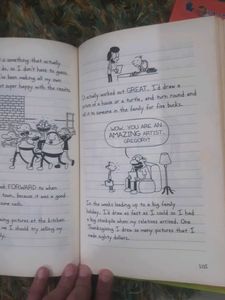 is something that actually
do, so I don't have to guess.
been making all my own
super happy with the results.
FORWARD to when
town, because it was a good
some cash.
ing pictures at the kitchen
me I should try selling my
actually worked out GREAT. I'd draw a
picture of a house or a turtle, and turn round and
sell it to someone in the family for five bucks.
WOW, YOU ARE AN
AMAZING ARTIST,
GREGORY!
In the weeks leading up to a big family
holiday, I'd draw as fast as I could so I had
a big stockpile when my relatives arrived. One
Thanksgiving I drew so many pictures that I
made eighty dollars.